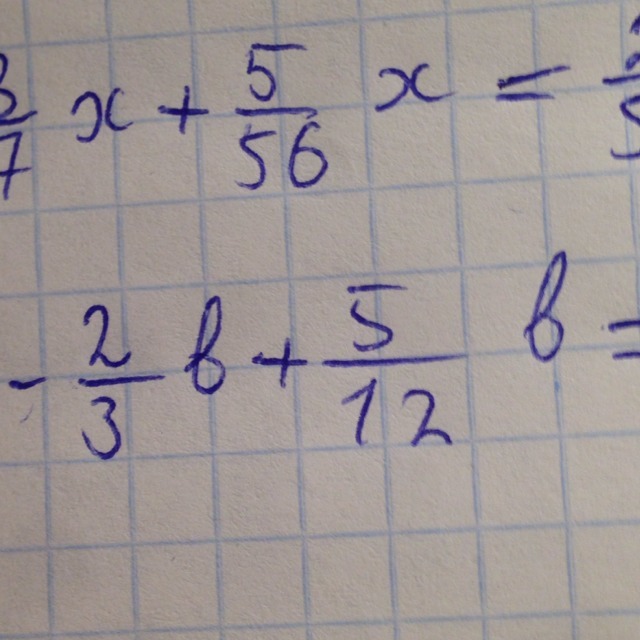 3/7 x + 5/56 x =
- 2/3 b + 5/12 b =